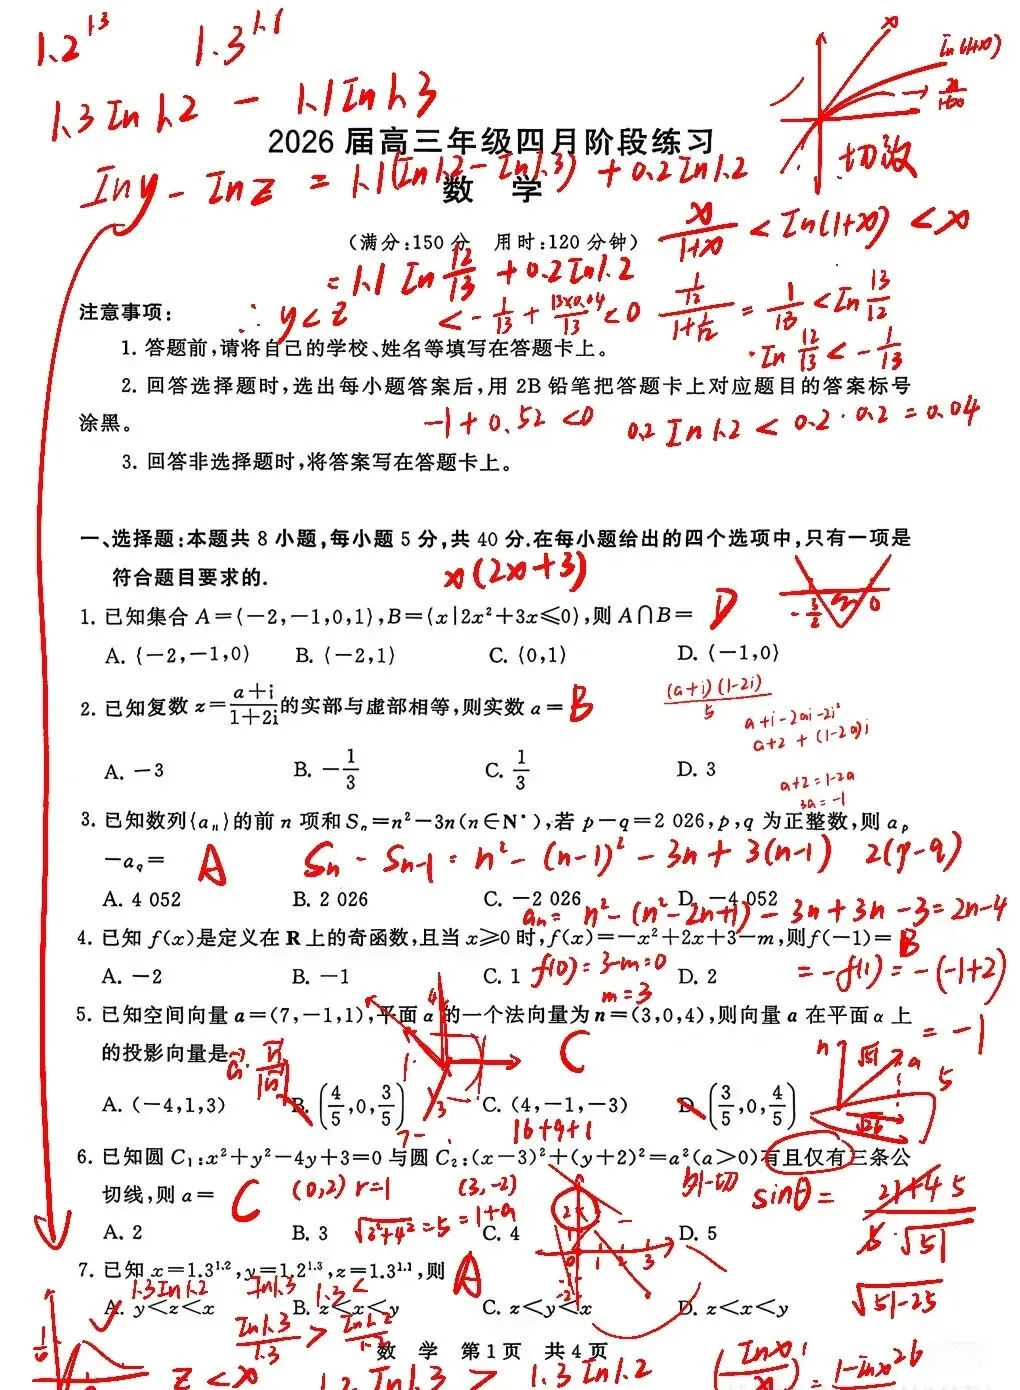 1.2^1.3 1.3^1.1
1.3 In 1.2 - 1.1 In 1.3
In(1+x)
x/(1+x)
2026 届高三年级四月阶段练习
切放
Iny - Inz = 1.1(In1.2 - In1.3) + 0.2 In1.2
数 学
x/(1+x) < In(1+x) < x
(满分:150 分 用时:120 分钟)
= 1.1 In 12/13 + 0.2 In1.2
注意事项:
∴ y<z < -1/13 + 13×0.04/13 < 0
(1/12)/(1+1/12) = 1/13 < In 13/12
1. 答题前,请将自己的学校、姓名等填写在答题卡上。
In 12/13 < -1/13
2. 回答选择题时,选出每小题答案后,用 2B 铅笔把答题卡上对应题目的答案标号
涂黑。
-1+0.52 <0 0.2 In1.2 < 0.2·0.2 = 0.04
3. 回答非选择题时,将答案写在答题卡上。
一、选择题:本题共 8 小题,每小题 5 分,共 40 分.在每小题给出的四个选项中,只有一项是
符合题目要求的.
x(2x+3)
1. 已知集合 A={-2,-1,0,1},B={x|2x²+3x≤0},则 A∩B= D
-3/2 0
A. {-2,-1,0} B. {-2,1} C. {0,1} D. {-1,0}
2. 已知复数 z=(a+i)/(1+2i)的实部与虚部相等,则实数 a= B
(a+i)(1-2i)/5
a+i-2ai-2i²
a+2+(1-2a)i
A. -3 B. -1/3 C. 1/3 D. 3
a+2=1-2a
3a=-1
3. 已知数列{aₙ}的前 n 项和 Sₙ=n²-3n(n∈N*),若 p-q=2 026,p,q 为正整数,则 aₚ
-a_q= A Sn - Sn-1 = n² - (n-1)² - 3n + 3(n-1) 2(p-q)
A. 4 052 B. 2 026 C. -2 026 D. -4 052
an = n² - (n² - 2n+1) - 3n + 3n - 3 = 2n-4
4. 已知 f(x)是定义在 R 上的奇函数,且当 x≥0 时,f(x)=-x²+2x+3-m,则f(-1)= B
A. -2 B. -1 C. 1 D. 2
f(0)=3-m=0
m=3
=-f(1) = -(-1+2)
= -1
5. 已知空间向量 a=(7,-1,1),平面 α 的一个法向量为 n=(3,0,4),则向量 a 在平面 α 上
的投影向量是 C
n √51 a 5
√26
A. (-4,1,3) B. (4/5,0,3/5) C. (4,-1,-3) D. (3/5,0,4/5)
16+9+1
6. 已知圆 C₁:x²+y²-4y+3=0 与圆 C₂:(x-3)²+(y+2)²=a²(a>0)有且仅有三条公
切线,则 a= C (0,2) r=1 (3,-2)
外切 sinθ =
√51
√(3²+4²)=5 = 1+a
A. 2 B. 3 C. 4 D. 5
7. 已知 x=1.3^1.2,y=1.2^1.3,z=1.3^1.1,则 A
1.3In1.2 In1.3 1.3<
√51-25
A. y<z<x B. z<x<y C. z<y<x D. z<x<y
In1.3/1.3 > In1.2/1.2
数 学 第1页 共4页
z<x 1.2 In1.3 > 1.3 In1.2 (Inx/x)' =